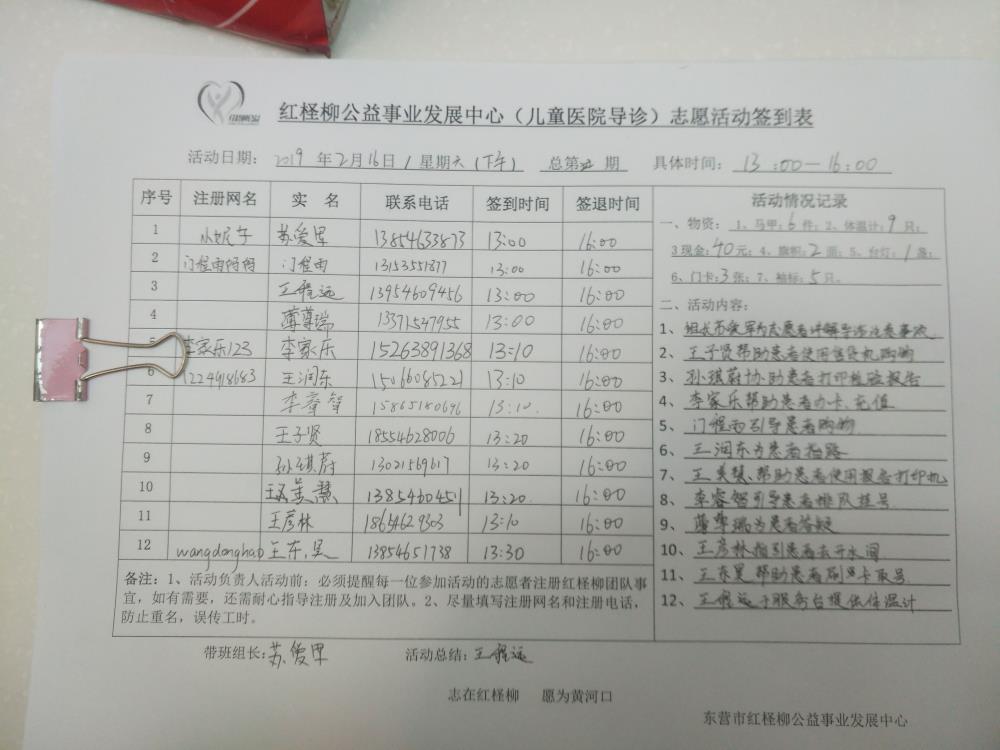 红柽柳公益事业发展中心（儿童医院导诊）志愿活动签到表
活动日期： 2019 年 2 月 16 日 / 星期六（下午） 总第 期 具体时间： 13:00—16:00
序号 注册网名 实 名 联系电话 签到时间 签退时间
1 苏爱军 13854633873 13:00 16:00
2 门程雨 13153551877 13:00 16:00
3 王程远 13954609456 13:00 16:00
4 薄尊瑞 13371547955 13:00 16:00
5 李家乐123 李家乐 15263891368 13:10 16:00
6 1224918683 王润东 15066085221 13:10 16:00
7 李睿智 15865180696 13:10. 16:00
8 王子贤 18554628006 13:20 16:00
9 孙琪蔚 13021569617 13:20 16:00
10 慧 13854604511 13:20. 16:00
11 王彦林 18654629303 13:10 16:00
12 wangdonghao 王东昊 13854651738 13:30 16:00
备注：1、活动负责人活动前：必须提醒每一位参加活动的志愿者注册红柽柳团队事
宜，如有需要，还需耐心指导注册及加入团队。2、尽量填写注册网名和注册电话，
防止重名，误传工时。
活动情况记录
一、物资： 1、马甲：6 件；2、体温计：9 只；
3 现金：40 元；4、旗帜：2 面；5、台灯：1 盏；
6、门卡：3 张；7、袖标：5 只。
二、活动内容：
1、组长苏爱军为志愿者讲解导诊注意事项
2、王子贤帮助患者使用售货机购物
3、孙琪蔚协助患者打印检验报告
4、李家乐帮助患者办卡、充值
5、门程雨引导患者购物
6、王润东为患者指路
7、王美慧帮助患者使用报告打印机
8、李睿智引导患者排队挂号
9、薄尊瑞为患者答疑
10、王彦林指引患者去开水间
11、王东昊帮助患者刷卡取号
12、王程远于服务台提供体温计
带班组长：苏爱军 活动总结：王程远
志在红柽柳 愿为黄河口
东营市红柽柳公益事业发展中心